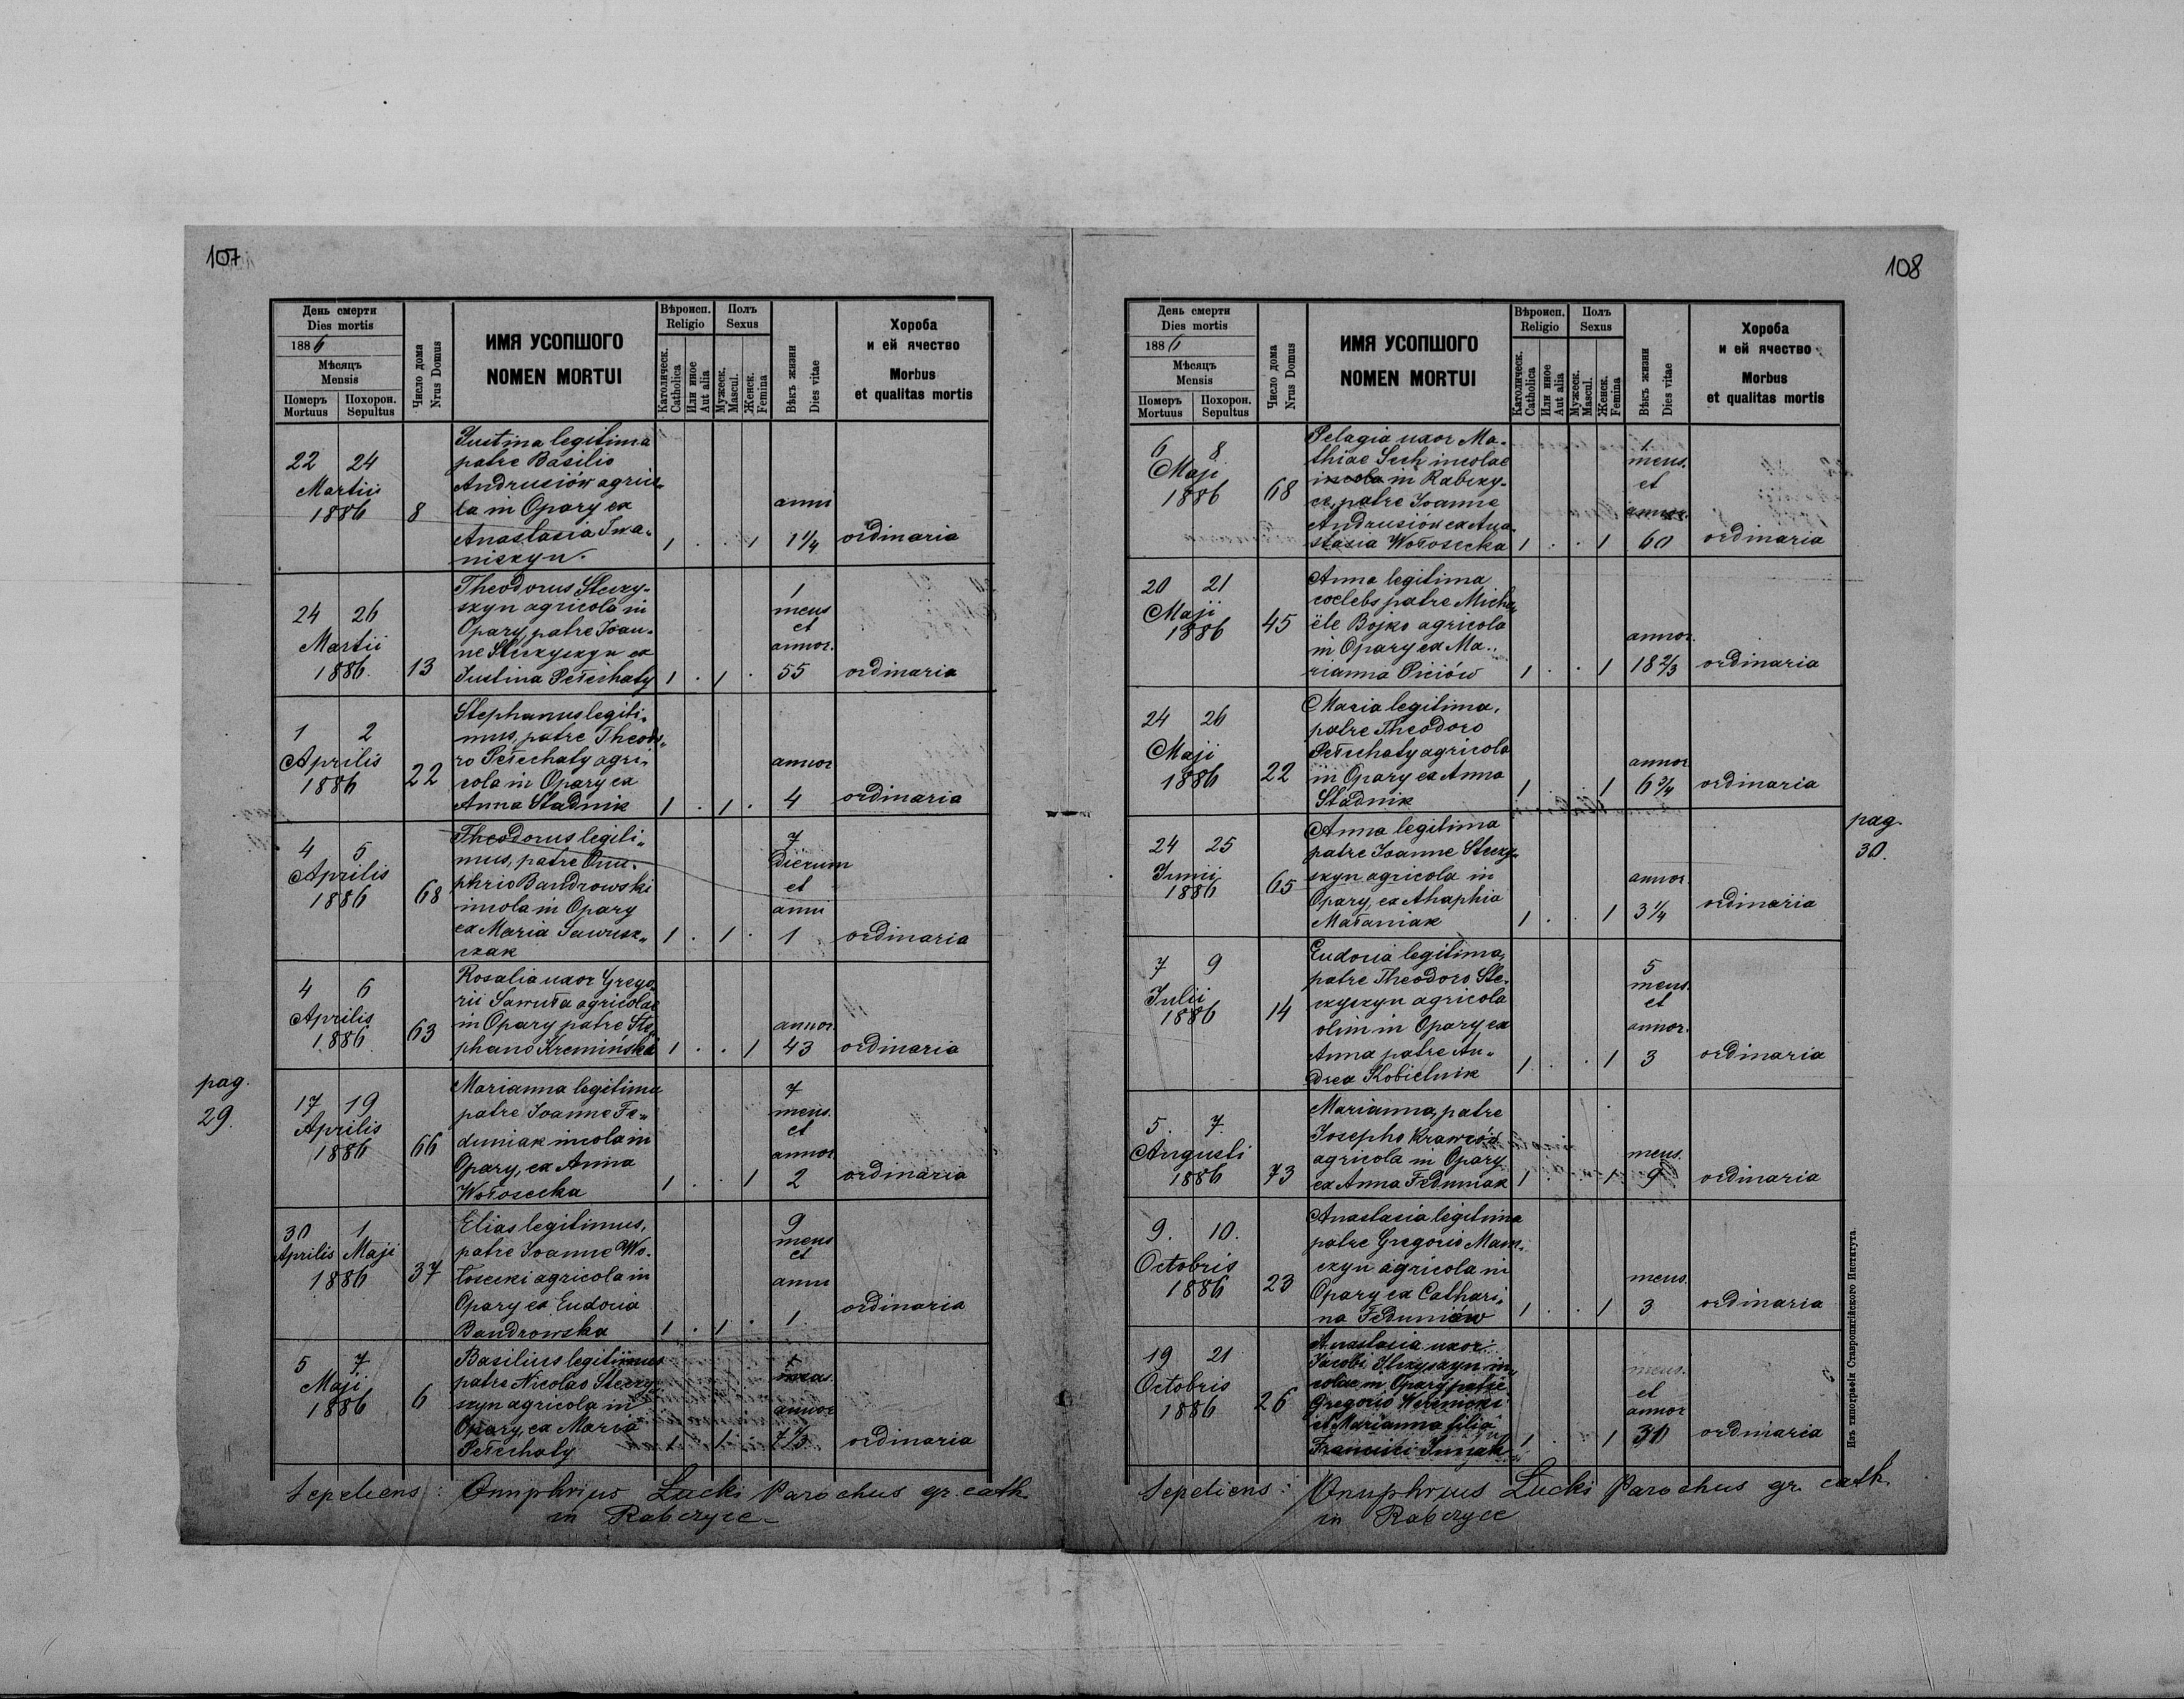 107
День смерти
Dies mortis
1886
Мѣсяцъ
Mensis
Померъ
Mortuus
Похорон.
Sepultus
Число дома
Nrus Domus
ИМЯ УСОПШОГО
NOMEN MORTUI
Вѣроисп.
Religio
Католическ.
Catholica
Или иное
Aut alia
Полъ
Sexus
Мужеск.
Mascul.
Женск.
Femina
Вѣкъ жизни
Dies vitae
Хороба
и ей ячество
Morbus
et qualitas mortis
22 24
Martii
1886
8
Justina legitima
patre Basilio
Andrusiów agrico-
la in Opary ex
Anastasia Iwa-
niszyn.
1 . . 1
anni
1 1/4
ordinaria
24 26
Martii
1886.
13
Theodorus Steczy-
szyn agricola in
Opary, patre Joan-
ne Steczyszyn ex
Justina Pełechaty
1 . 1 .
1
mens
et
annor.
55
ordinaria
1 2
Aprilis
1886
22
Stephanus legiti-
mus, patre Theodo-
ro Pełechaty agri-
cola in Opary ex
Anna Stadnik
1 . 1 .
annor
4
ordinaria
4 5
Aprilis
1886
68
Theodorus legiti-
mus, patre Onu-
phrio Bandrowski
incola in Opary
ex Maria
1 . 1 .
7
dierum
et
anni
1
ordinaria
4 6
Aprilis
1886
63
Rosalia uxor Grego-
rii Sawuła agricolae
in Opary patre Ste-
phano Kremińska
1 . . 1
annor.
43
ordinaria
pag.
29.
17 19
Aprilis
1886
66
Marianna legitima
patre Joanne Fe-
duniak incola in
Opary, ex Anna
Wołosecka
1 . . 1
7
mens.
et
annor
2
ordinaria
30 1
Aprilis Maji
1886
37
Elias legitimus,
patre Joanne Wo-
łosecki agricola in
Opary ex Eudocia
Bandrowska
1 . 1 .
9
mens
et
anni
1.
ordinaria
5 7
Maji
1886
6
Basilius legitimus
patre Nicolao Steczy-
szyn agricola in
Opary, ex Maria
Pełechaty
1 1
1
mens.
annor
7 1/3
ordinaria
Sepeliens: Onuphrius Łucki Parochus gr. cath.
in Rabczyce
108
День смерти
Dies mortis
1886
Мѣсяцъ
Mensis
Померъ
Mortuus
Похорон.
Sepultus
Число дома
Nrus Domus
ИМЯ УСОПШОГО
NOMEN MORTUI
Вѣроисп.
Religio
Католическ.
Catholica
Или иное
Aut alia
Полъ
Sexus
Мужеск.
Mascul.
Женск.
Femina
Вѣкъ жизни
Dies vitae
Хороба
и ей ячество
Morbus
et qualitas mortis
6 8
Maji
1886
68
Pelagia uxor Ma-
thiae Sech incolae
incola in Rabczy-
ce, patre Joanne
Andrusiów ex Ana-
stasia Wołosecka
1 . . 1
1
mens.
et
annor.
60
ordinaria
20 21
Maji
1886
45
Anna legitima
coelebs patre Micha-
ële Bojko agricola
in Opary ex Ma-
rianna Piciów
1 . . 1
annor.
18 2/3
ordinaria
24 26
Maji
1886
22
Maria legitima,
patre Theodoro
Pełechaty agricola
in Opary ex Anna
Stadnik
1 . . 1
annor
6 3/4
ordinaria
pag.
30.
24 25
Junii
1886
65
Anna legitima
patre Joanne Steczy-
szyn agricola in
Opary, ex Ahaphia
Małaniak
1 . . 1
annor.
3 1/4
ordinaria
7 9
Julii
1886
14
Eudocia legitima,
patre Theodoro Ste-
czyszyn agricola
olim in Opary ex
Anna patre An-
drea Kobielnik
1 . . 1
5
mens.
et
annor.
3
ordinaria
5. 7.
Augusti
1886
73
Marianna, patre
Josepho Krawców
agricola in Opary
ex Anna Feduniak
1 . . 1
mens.
9
ordinaria
9. 10.
Octobris
1886
23
Anastasia legitima
patre Gregorio Mam-
czyn agricola in
Opary ex Cathari-
na Feduniów
1 . . 1
mens.
3
ordinaria
19 21
Octobris
1886
26
Anastasia uxor
Jacobi Steczyszyn in-
colae in Opary patre
Gregorio
et Marianna filia
Francisci
1 . . 1
mens.
et
annor
30
ordinaria
Sepeliens: Onuphrius Łucki Parochus gr. cath.
in Rabczyce
Изъ типографіи Ставропигійского Института.